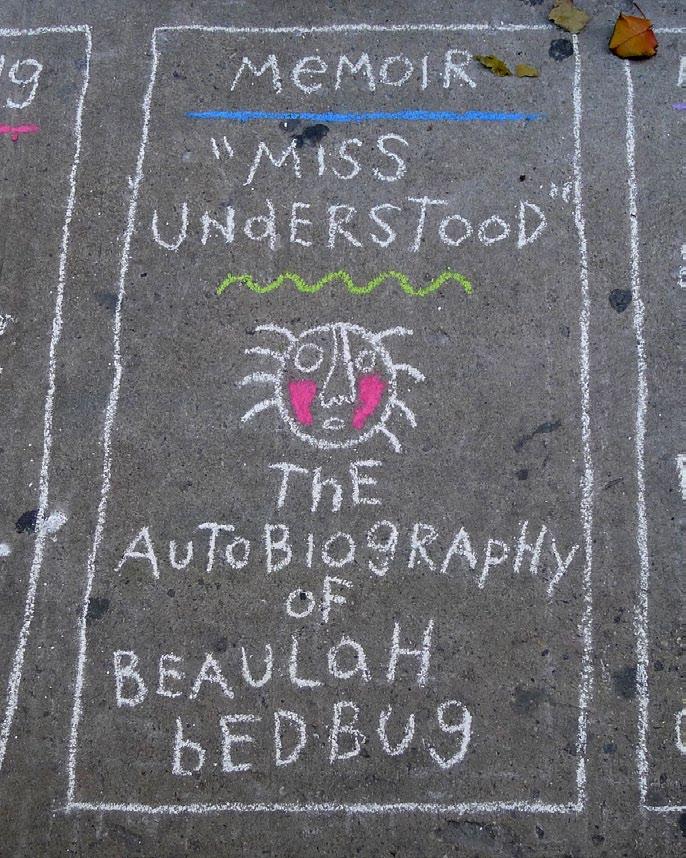 MEMOIR
"MISS
UNdERSTOOD"
ThE
AUTOBIOgRAPHY
OF
BEAULaH
bEDBUg